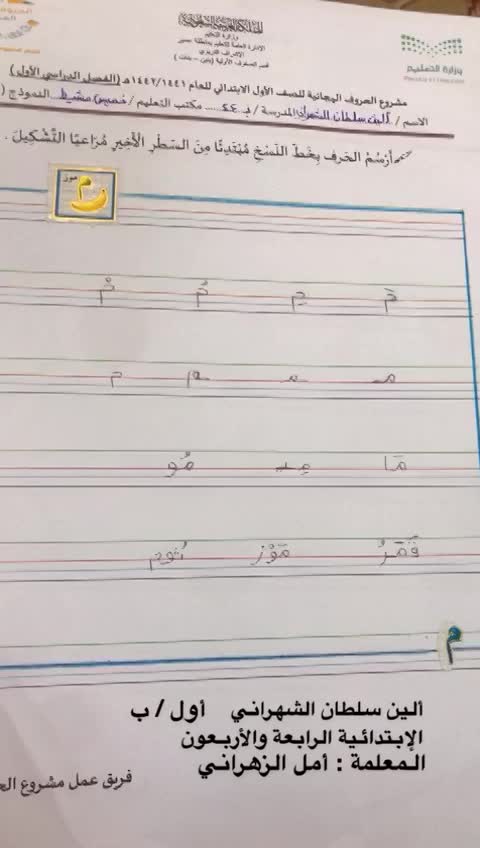 المملكة العربية السعودية
وزارة التعليم
الإدارة العامة للتعليم بمنطقة عسير
الإشراف التربوي
قسم الصفوف الأولية (بنين - بنات)
وزارة التعليم
Ministry of Education
مشروع الحروف الهجائية للصف الأول الابتدائي للعام ١٤٤٢/١٤٤١هـ (الفصل الدراسي الأول)
الاسم / ألين سلطان الشهراني المدرسة / ب ٤٤ ..... مكتب التعليم / خميس مشيط النموذج (
أَرْسُمُ الحَرفَ بِخَطِّ النَّسْخِ مُبْتَدِئًا مِنَ السَّطْرِ الْأَخِيرِ مُرَاعِيًا التَّشْكِيلَ .
م موز
مَ مِ مُ مْ
مـ ـمـ ـم م
مَا مِـ مُو
قَمَرٌ مَوْز تُوم
م
ألين سلطان الشهراني أول / ب
الإبتدائية الرابعة والأربعون
المعلمة : أمل الزهراني
فريق عمل مشروع